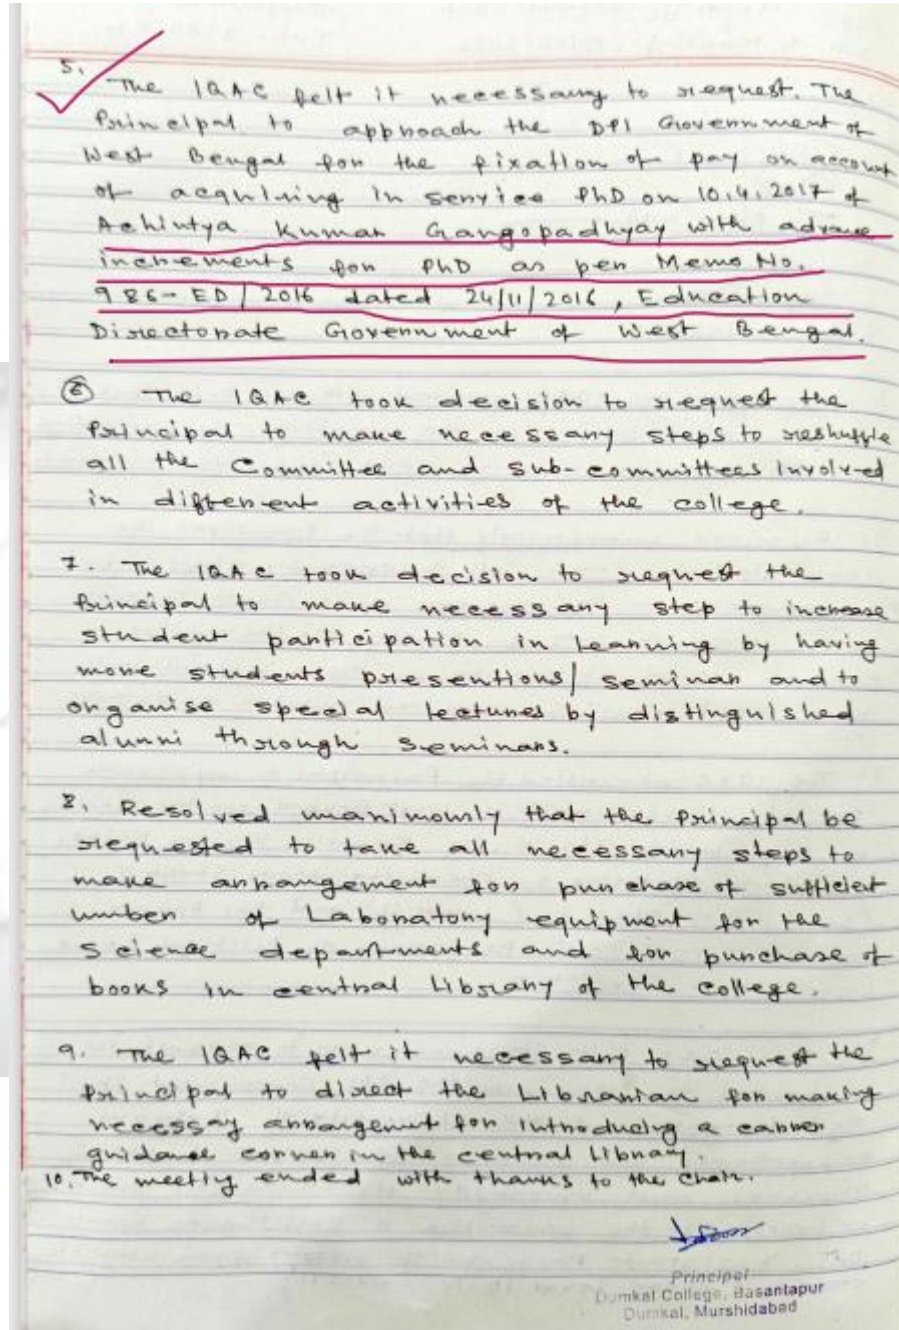 5.
The IQAC felt it necessary to request. The
Principal to approach the DPI Government of
West Bengal for the fixation of pay on account
of acquiring in service PhD on 10.4.2017 of
Achintya Kumar Gangopadhyay with advance
increments for PhD as per Memo No.
986-ED/2016 dated 24/11/2016, Education
Directorate Government of West Bengal.
6 The IQAC took decision to request the
Principal to make necessary steps to reshuffle
all the Committee and sub-committees involved
in different activities of the college.
7. The IQAC took decision to request the
Principal to make necessary step to increase
student participation in learning by having
more students presentions/ seminar and to
organise special lectures by distinguished
alunni through seminars.
8. Resolved unanimously that the Principal be
requested to take all necessary steps to
make arrangement for purchase of sufficient
number of Laboratory equipment for the
Science departments and for purchase of
books in central Library of the college.
9. The IQAC felt it necessary to request the
Principal to direct the Librarian for making
necessay arrangement for introducing a carrer
guidance corner in the central library.
10. The meeting ended with thanks to the chair.
Principal
Dumkal College, Basantapur
Dumkal, Murshidabad